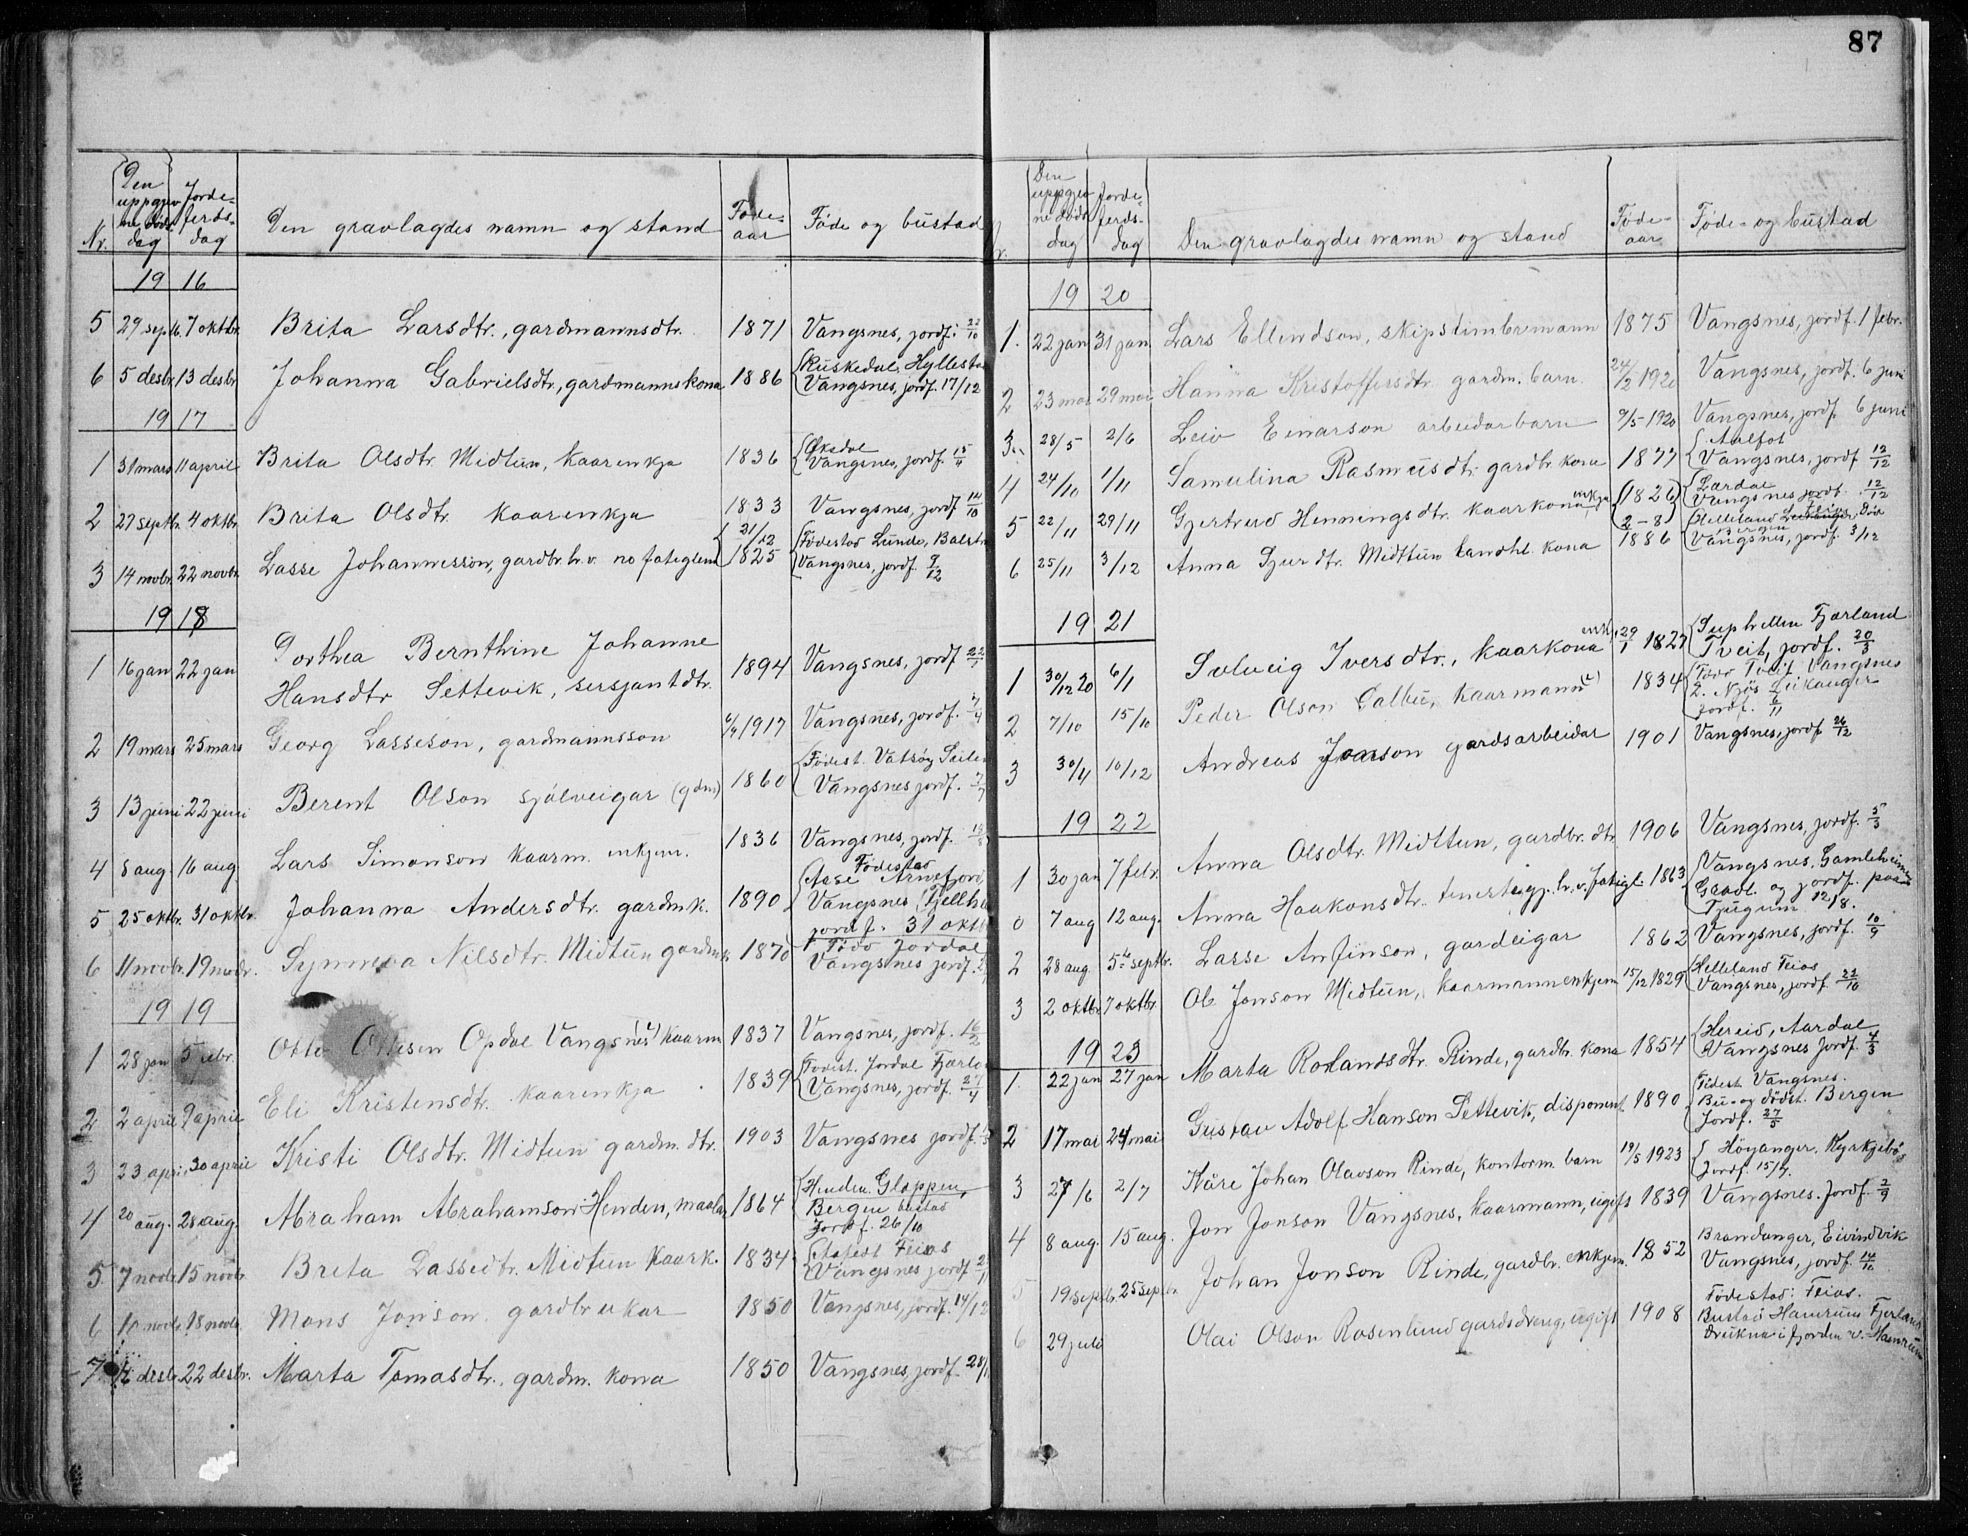 87
Nr.
Den uppgjevne döds dag
Jorde-ferds-dag
Den gravlagdes namn og stand
Föde-aar
Föde og bustad
1916
5 29 septb. 7 oktbr. Brita Larsdtr., gardmannsdtr. 1871 Vangsnes, jordf. 22/10
6 5 desbr. 13 desbr. Johanna Gabrielsdtr., gardmannskona 1886 Ruskedal, Hyllestad
Vangsnes, jordf. 17/12
1917
1 31 mars 11 april Brita Olsdtr. Midtun, kaarenkja 1836 Öksdal
Vangsnes, jordf. 15/4
2 27 septbr. 4 oktbr. Brita Olsdtr. kaarenkja 1833 Vangsnes, jordf. 14/10
3 14 novbr. 22 novbr. Lasse Johannesson, gardbr. h.v. no fateglem 21/12 1825 Födestad Lunde, Balstr
Vangsnes, jordf. 9/12
1918
1 16 jan 22 jan Dorthea Bernthine Johanne
Hansdtr Settevik, sersjantdtr. 1894 Vangsnes, jordf.
2 19 mars 25 mars Georg Lasseson, gardmannsson 1917 Vangsnes, jordf.
3 13 juni 22 juni Berent Olson sjölveigar (gdm) 1860 Födest. Vatsöy
Vangsnes jordf.
4 8 aug 16 aug Lars Simonson kaarm. enkjem. 1836 Vangsnes, jordf.
5 25 oktbr. 31 oktbr. Johanna Andersdtr. gardmk. 1890 Födestad
Aase Arnefjord
Vangsnes (Fjellhe
jordf. 31 okt
6 11 novbr. 19 novbr. Synneva Nilsdtr. Midtun gardmk. 1870 Född Jordal
Vangsnes jordf.
1919
1 28 jan 5 febr. Otto Ottesen Opdal Vangsnes kaarm 1837 Vangsnes, jordf. 16/2
2 2 april 9 april Eli Kristensdtr. kaarenkja 1839 Födest. Jordal Fjærla
Vangsnes, jordf. 27/4
3 23 april 30 april Kristi Olsdtr. Midtun gardm. dtr. 1903 Vangsnes jordf.
4 20 aug. 28 aug. Abraham Abrahamson Henden, maalar 1864 Henden, Gloppen,
Bergen bustad
Jordf. 26/10
5 7 novbr 15 novbr. Brita Lassedtr. Midtun kaark. 1834 Feios
Vangsnes jordf.
6 10 novbr. 18 novbr. Mons Jonson. gardbrukar 1850 Vangsnes, jordf. 14/12
7 desbr. 22 desbr. Marta Tomasdtr., gardm. kona 1850 Vangsnes, jordf. 28/
Nr.
Den uppgjevne döds dag
Jorde-ferds-dag
Den gravlagdes namn og stand
Föde-aar
Föde- og bustad
1920
1. 22 jan 31 jan Lars Ellendson, skipstimbrmann 1875 Vangsnes, jordf. 1 febr.
2 23 mai 29 mai Hanna Kristoffersdtr. gardm. barn. 24/2 1920 Vangsnes, jordf. 6 juni
3. 28/5 2/6 Leiv Einarson arbeidarbarn 9/5-1920 Vangsnes, jordf. 6 juni
4 24/10 1/11 Samulina Rasmusdtr. gardbr. kona 1877 Aalfot
Vangsnes, jordf. 12/12
5 22/11 29/11 Gjertrud Henningsdtr. kaarkona, enkja 1826 Lærdal
Vangsnes jordf. 12/12
6 25/11 3/12 Anna Sjurdtr. Midttun landhl. kona 2-8 1886 Helleland Feios, Död
Bergen
Vangsnes, jordf. 3/12
1921
1 30/12 20 6/1 Solveig Iversdtr., kaarkona enk. 29/1 1827 Suphellen Fjærland
Tveit, jordf. 20/3
2 7/10 15/10 Peder Olson Galbu, kaarmann 1834 Född Tveit Vangsnes
d. Njös Leikanger
jordf. 6/11
3 30/11 10/12 Andreas Ivarson gardsarbeidar 1901 Vangsnes, jordf. 26/12
1922
1 30 jan 7 febr. Anna Olsdtr. Midttun, gardbr. dtr. 1906 Vangsnes, jordf. 5/3
0 7 aug 12 aug. Anna Haakonsdtr. h.v. fatigl. 1863 Vangsnes. Gamleheimen
Gravl. og jordf. paa
Tjugum 12/8.
2 28 aug. 5te septbr. Lasse Anfinson, gardeigar 1862 Vangsnes, jordf. 10/9
3 2 oktbr 7 oktbr Ol. Jonson Midtun, kaarmann enkjem 15/12 1829 Helleland Feios
Vangsnes, jordf. 22/10
1923
1. 22 jan 27 jan Marta Rollandsdtr. Rinde, gardbr. kona 1854 Hereid, Aardal
Vangsnes Jordf. 4/3
2 17 mai 24 mai Gustav Adolf Hanson Settevik, disponent. 1890 Födest Vangsnes.
Bu- og dödst. Bergen
Jordf. 27/5
3 27/6 2/7 Kåre Johan Olavson Rinde, kontorm. barn 19/5 1923 Höyanger, Kyrkjebö
Jordf. 15/7.
4 8 aug. 15 aug. Jon Jonson Vangsnes, kaarmann, ugift 1839 Vangsnes. Jordf. 2/9
5 19 septbr. 25 septbr. Johan Jonson Rinde, gardbr. enkjem. 1852 Brandanger, Eivindvik
Vangsnes, jordf. 14/10
6 29 juli Olai Olson Rosenlund gardsdreng, ugift 1908 Födestad: Feios.
Bustad Hamrum Fjerland
Drukna i fjorden v. Hamrum